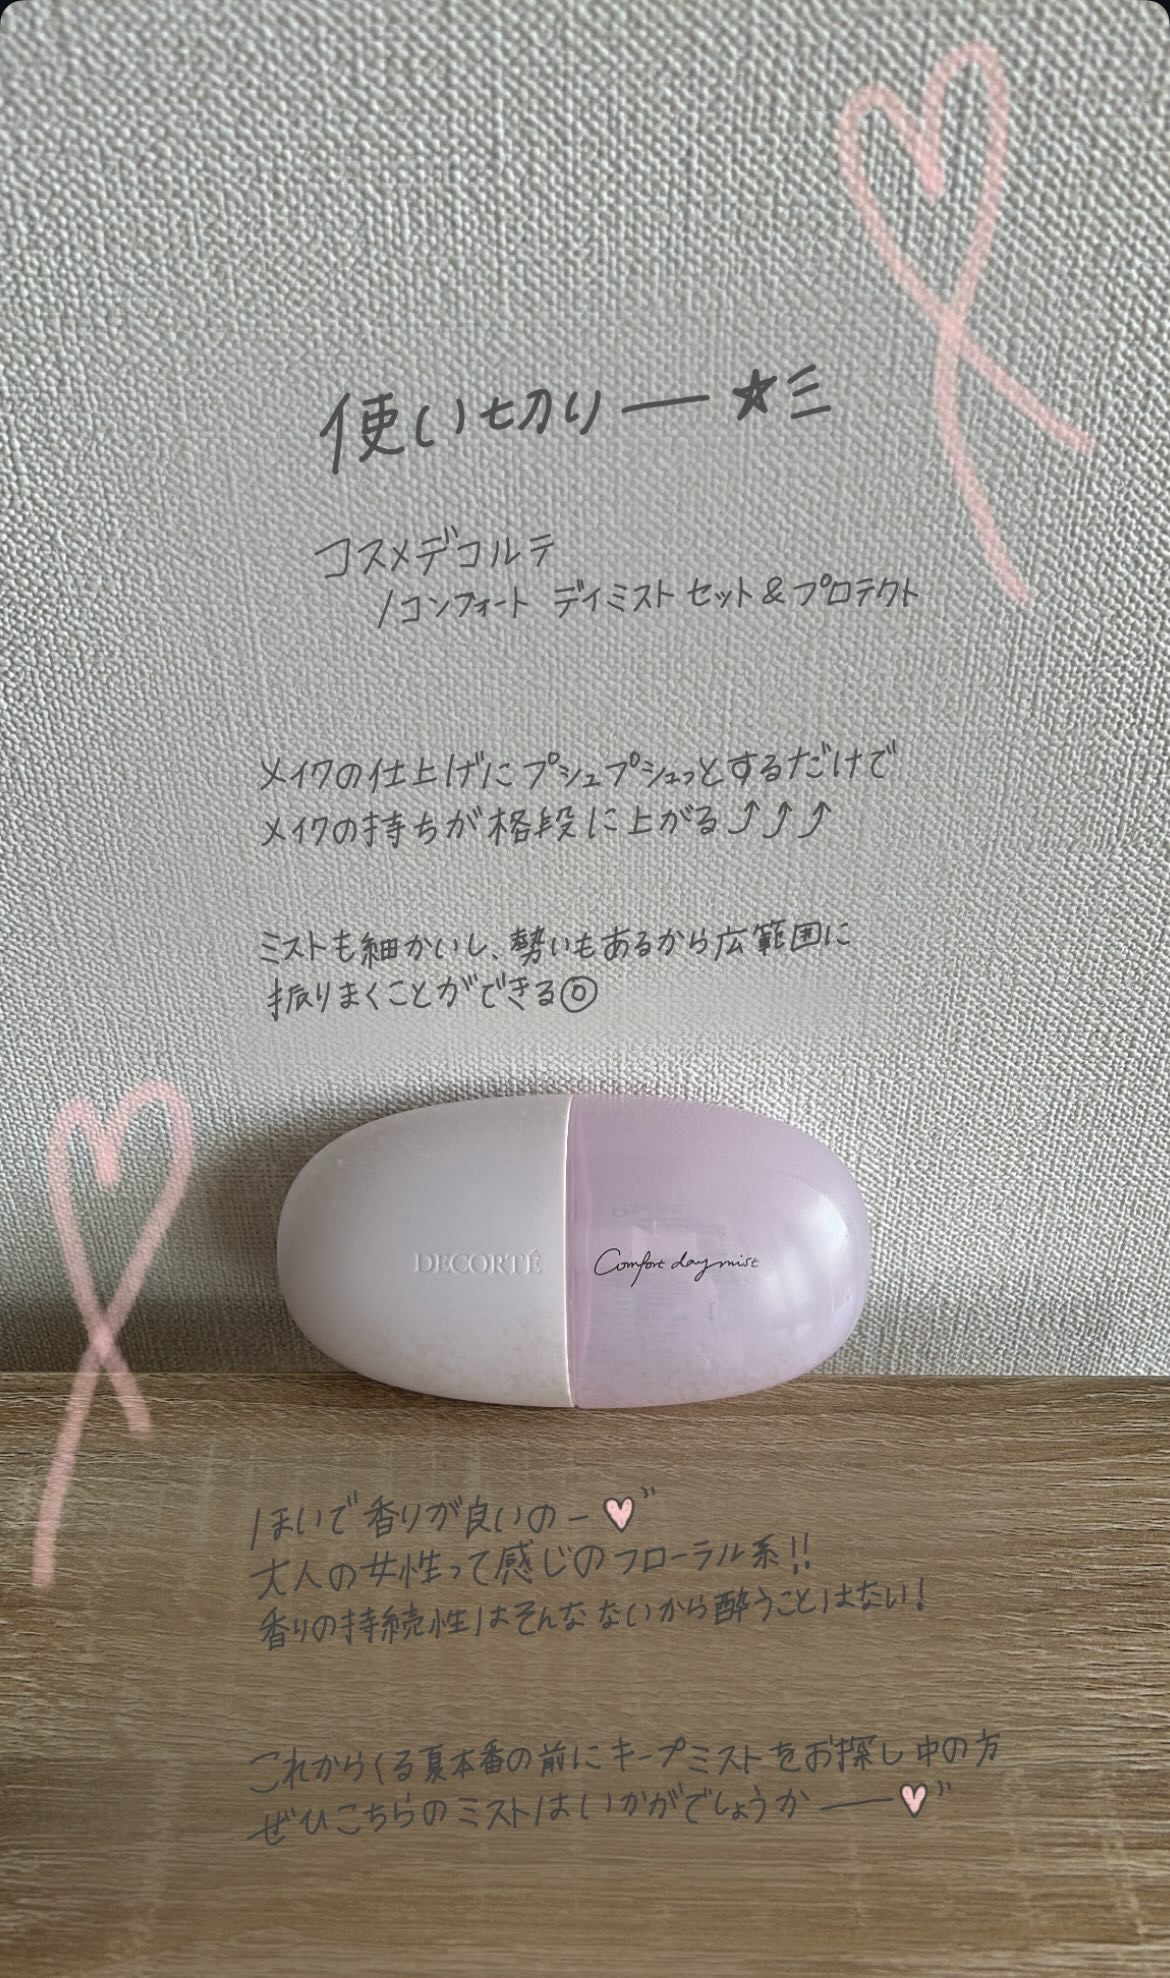 使い切りー★彡
コスメデコルテ
/コンフォート デイミスト セット&プロテクト
メイクの仕上げにプシュプシュっとするだけで
メイクの持ちが格段に上がる⤴⤴⤴
ミストも細かいし、勢いもあるから広範囲に
振りまくことができる◎
DECORTÉ
Comfort day mist
ほいで香りが良いのー♡"
大人の女性って感じのフローラル系!!
香りの持続性はそんなないから酔うことはない!
これからくる夏本番の前にキープミストをお探し中の方
ぜひこちらのミストはいかがでしょうかー♡"